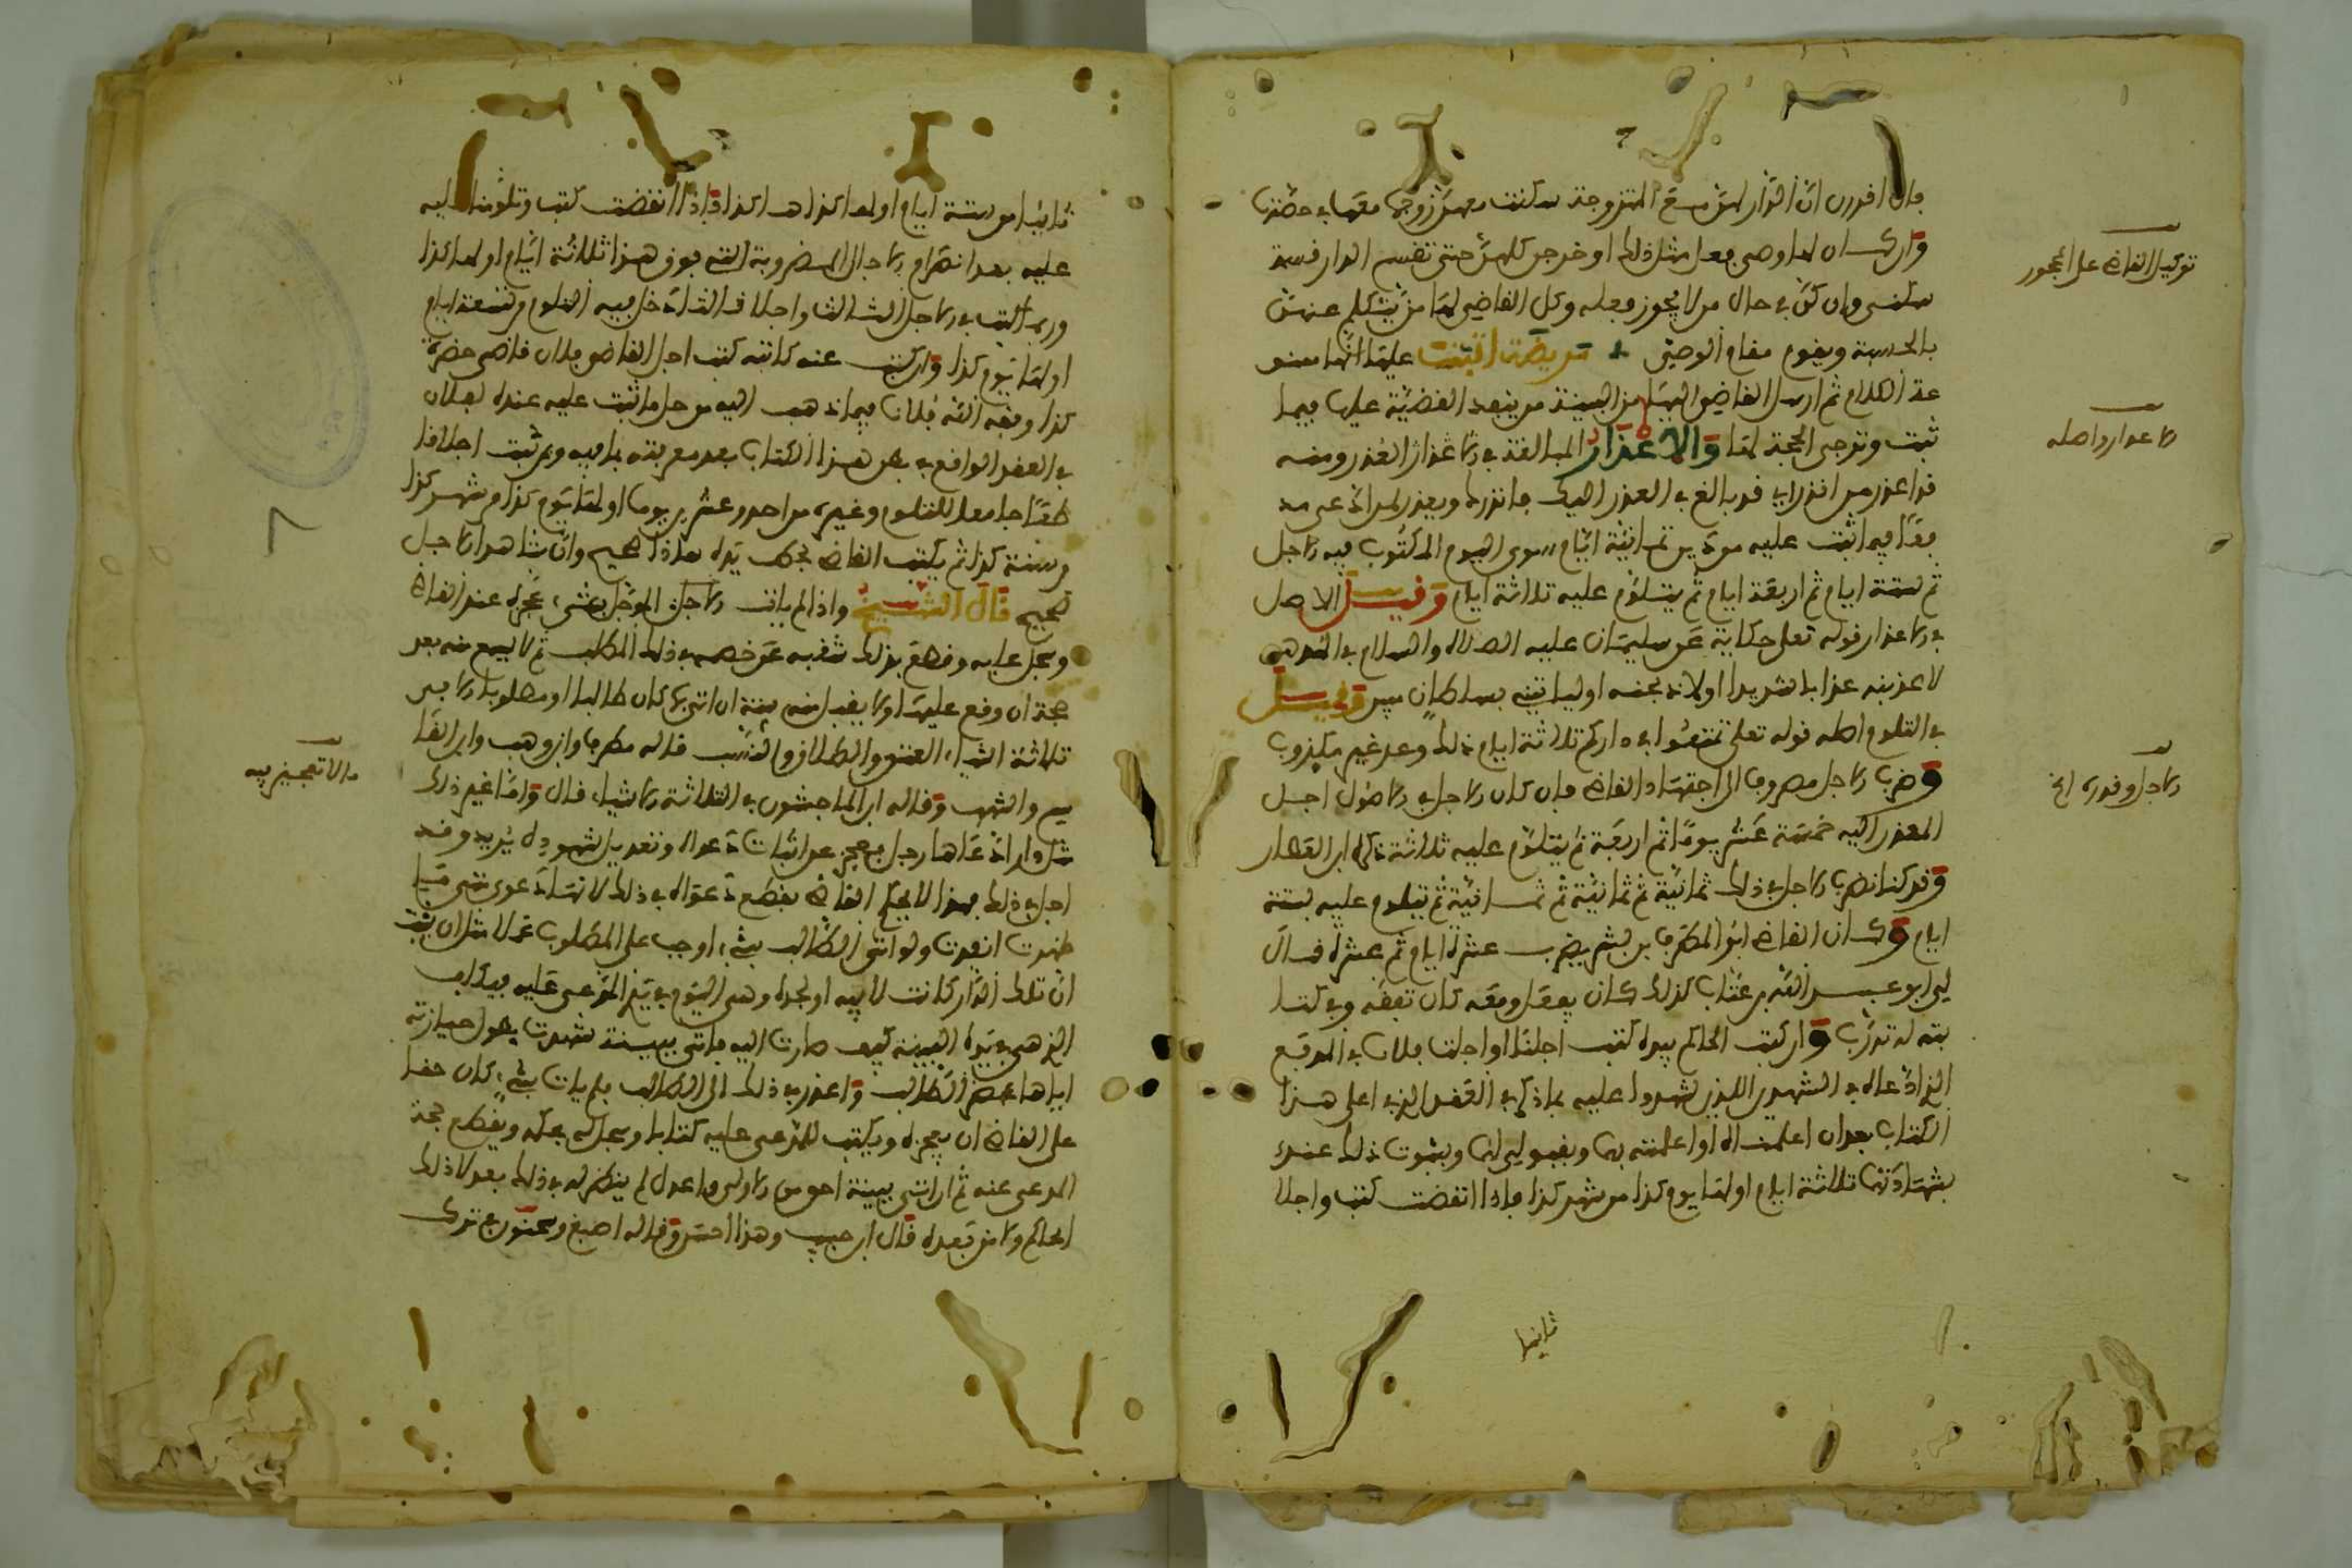 فإن اقررن ان الدار لهن مع المتزوجة سكنت معهن زوجها معها في حصتها
وان كان لها وصي فعل مثل ذلك او خرجن كلهن حتى تقسم الدار قسمة
سكنى وان كن في حال من لا يجوز فعله وكل القاضي لهما من يتكلم عنهن
بالحسبة ويقوم مقام الوصي مريضة اثبتت عليها
ثم ارسل القاضي اليها من البينة من ينفذ القضية عليها فيما
ثبت وترجى الحجة لها والاعذار المبالغة في الاعذار العذر ومنه
قد اعذر من انذر اي قد بالغ في العذر اليك من انذرك ويعذر للمدعى
فيما اثبت عليه من دين ثمانية ايام سوى اليوم المكتوب فيه الاجل
ثم ستة ايام ثم اربعة ايام ثم يتلوم عليه ثلاثة ايام وقيل الاصل
في الاعذار قوله تعلى حكاية عن سليمان عليه الصلاة والسلام في الهدهد
لاعذبنه عذابا شديدا او لاذبحنه او لياتيني بسلطان مبين وقيل
في التلوم اصله قوله تعلى تمتعوا في داركم ثلاثة ايام ذلك وعد غير مكذوب
وضرب الاجل مصروف الى اجتهاد القاضي فان كان الاجل في الاصول اجل
المعذر اليه خمسة عشر يوما ثم اربعة ثم يتلوم عليه ثلاثة ذكره ابن العطار
وقد كنا نضرب الاجل في ذلك ثمانية ثم ثمانية ثم ثمانية ثم يتلوم عليه ستة
ايام وكان القاضي ابو المطرف بن بشر يضرب عشرة ايام ثم عشرة قال
لي ابو عبد الله بن عتاب كذلك كان يفعل ومعه كان تفقه وفي كتا
بته له تدرب وان كتب الحاكم بيده كتب اجلنا او اجلت فلان في المدفع
الذي ادعاه في الشهود الذين شهدوا عليه بما ذكر في العقد الذي اعلى هذا
الكتاب بعد ان اعلمناه او اعلمته بهما وبقبولي لهما وبثبوت ذلك عندي
بشهادتهما ثلاثة ايام اولها يوم كذا من شهر كذا فإذا انقضت كتب واجلا
ثانيا
توكيل القاضي على المحجور
الاعذار واصله
الاجل وقدره الخ
ثانيا من ستة ايام اولها كذا فإذا انقضت كتب وتلومنا عليه
عليه بعد انصرام الاجال المضروبة اليه فوق هذا ثلاثة ايام اولها كذا
وربما كتب في الاجل الثالث واجلا ثالثا دخل فيه التلوم من تسعة ايام
اولها يوم كذا وان كتب عنه كاتبه كتب اجل القاضي فلان قاضي حضرة
كذا وفقه الله فلان فيما ذهب اليه من حل ما ثبت عليه عنده لفلان
في العقد الواقع في بطن هذا الكتاب بعد معرفته بما فيه وبمن ثبت اجلا قا
طعا جامعا للتلوم وغيره من احد وعشرين يوما اولها يوم كذا من شهر كذا
من سنة كذا ثم يكتب القاضي بخط يده هذا صحيح وان شاهد الاجل
صحيح قال الشيخ واذا لم يات الاجل المؤجل بشيء عجزه عند القاضي
وسجل عليه وقطع بذلك شغبه عن خصمه في ذلك المطلب ثم لا يسمع منه بعد
حجة ان وقع عليها ولا يقبل منه بينة ان اتى بها كان طالبا او مطلوبا الا في
ثلاثة اشياء العتق والطلاق والنسب قاله مطرف وابن وهب وابن القا
سم واشهب وقاله ابن الماجشون في الثلاثة الاشياء قال واما غير ذلك
مثل دار ادعاها رجل فعجز عن اثبات دعواه وتعديل شهوده يريد وقد
اجل في ذلك فهذا لا يحكم القاضي بقطع دعواه في ذلك لانها دعوى متى ما
ظهرت انفذت ولو اتى الطالب بشيء اوجب على المطلوب عملا مثل ان يثبت
ان تلك الدار كانت لابيه او لجده وهي اليوم في يد المدعى عليه فيكلف
الذي هي في يده البينة كيف صارت اليه فاتى ببينة شهدت بطول حيازته
اياها بمحضر الطالب واعذر في ذلك الى الطالب فلم يات بشيء كان حقا
على القاضي ان يعجزه ويكتب للمدعى عليه كتابا ويسجل له بحكمه ويقطع حجة
المدعي عنه ثم ان اتى ببينة احق من الاولى واعدل لم ينظر له في ذلك بعد ذلك
الحاكم ولا من بعده قال ابن حبيب وهذا احسن وقاله اصبغ وسحنون
ما لا تعجيز فيه